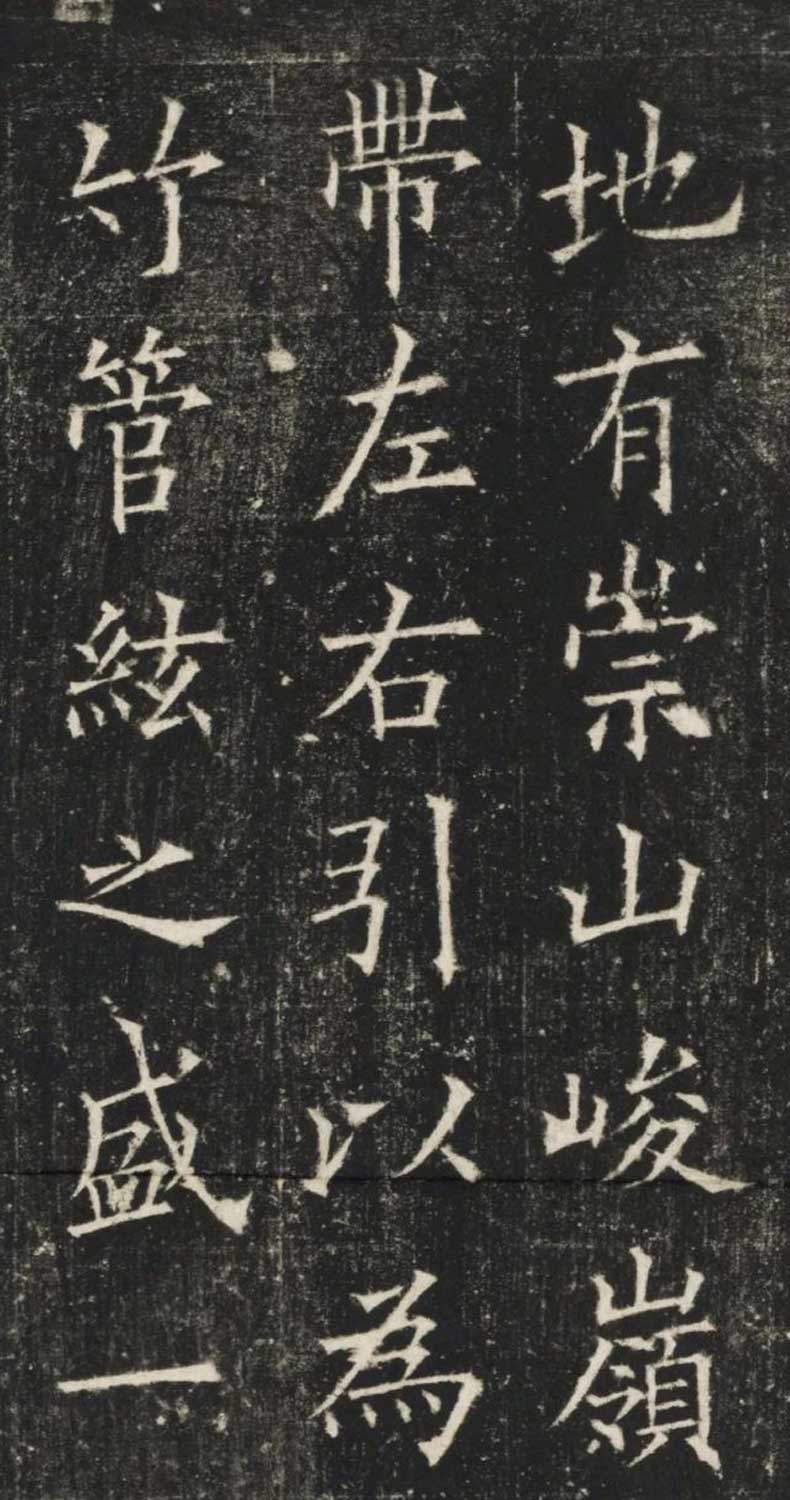 地有崇山峻嶺
帶左右引以為
竹管絃之盛一